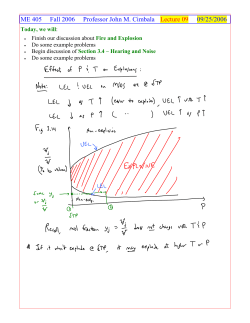 ME 405 Fall 2006 Professor John M. Cimbala Lecture 09 09/25/2006
Today, we will:
• Finish our discussion about Fire and Explosion
• Do some example problems
• Begin discussion of Section 3.4 – Hearing and Noise
• Do some example problems
Effect of P & T on Explosions:
Note: LEL & UEL in MSDS are @ STP
LEL ↓ as T ↑ (easier to explode), UEL ↑ with T ↑
LEL ↓ as P ↑ ( " ) UEL ↑ as P ↑
Fig. 3.4
Non-explosive
UEL
EXPLOSIVE
(% by volume)
LEL
Non-exp.
STP
P
Recall, mol fraction yj = Vj/V does not change with T & P
* If it don't explode @ STP, it may explode at higher T or P